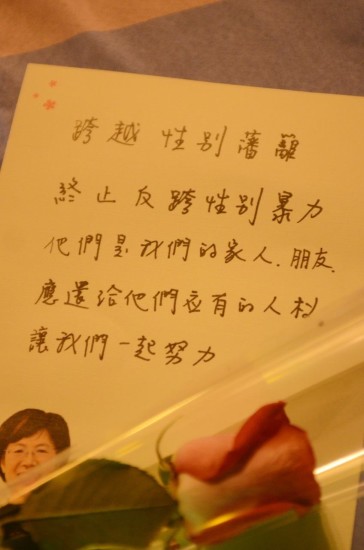 跨越性別藩籬
終止反跨性別暴力
他們是我們的家人、朋友、
應還給他們应有的人权
讓我們一起努力